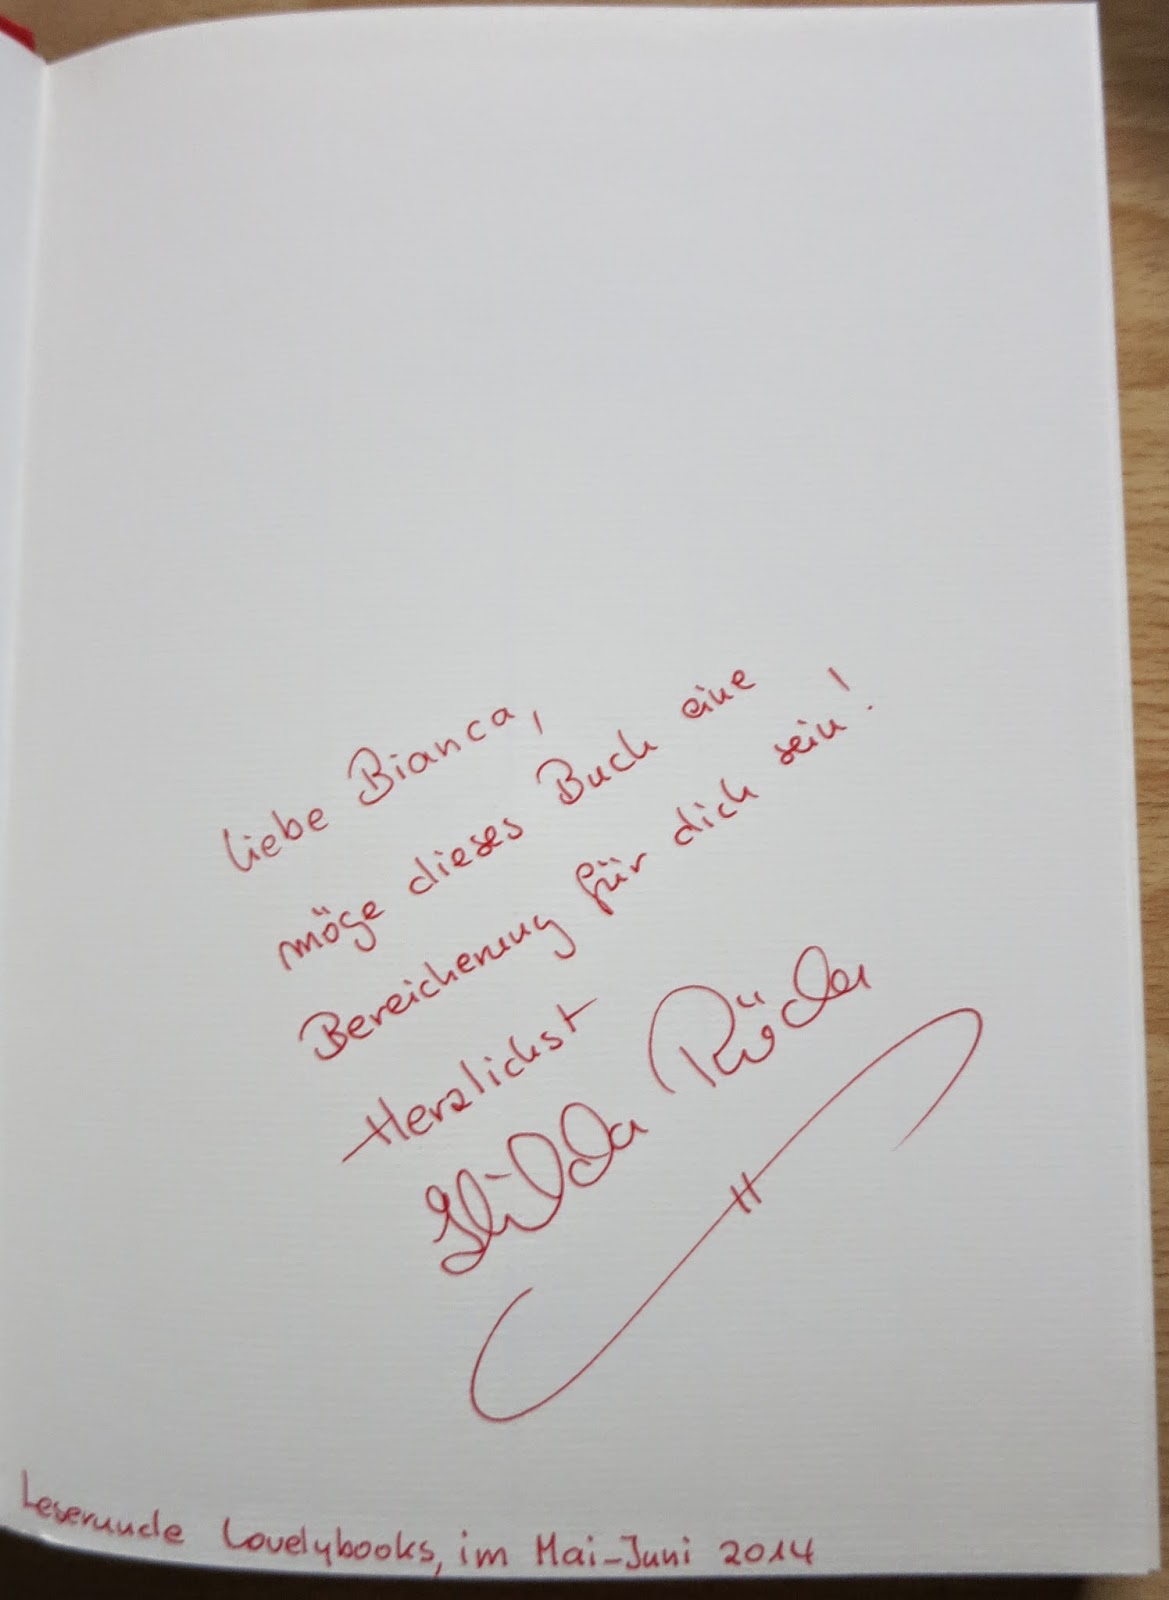 Liebe Bianca,
möge dieses Buch eine
Bereicherung für dich sein!
Herzlichst
Hilda Röder
Leserunde Lovelybooks, im Mai-Juni 2014